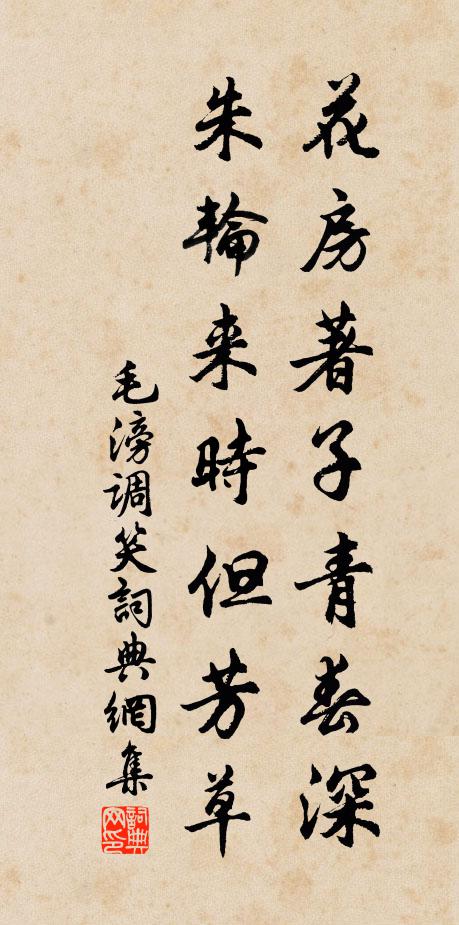 花房著子青春深
朱輪来時但芳草
毛滂調笑詞典網集
詞典網印